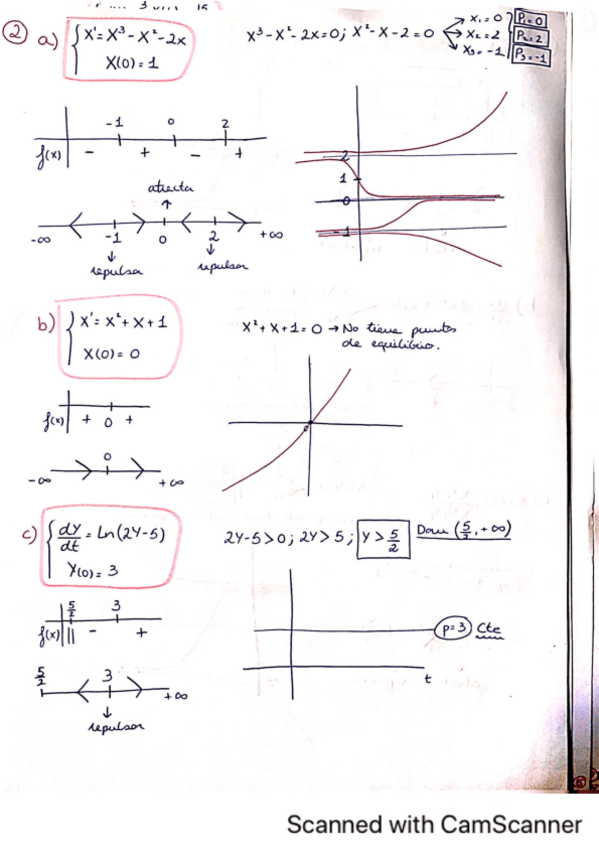 ② a) { x' = x³ - x² - 2x
x(0) = 1
x³ - x² - 2x = 0 ; x² - x - 2 = 0
x₁ = 0 P₁ = 0
x₂ = 2 P₂ = 2
x₃ = -1 P₃ = -1
-1 0 2
f(x) - + - +
atractor
-∞ -1 0 2 +∞
repulsor repulsor
2
1
0
-1
b) { x' = x² + x + 1
x(0) = 0
x² + x + 1 = 0 → No tiene puntos
de equilibrio.
f(x) + 0 +
0
-∞ +∞
0
c) { dy/dt = Ln(2y-5)
y(0) = 3
2y-5>0 ; 2y>5 ; y > 5/2 Dom (5/2, +∞)
5/2 3
f(x) - +
5/2 3 +∞
repulsor
p=3 Cte
t
Scanned with CamScanner